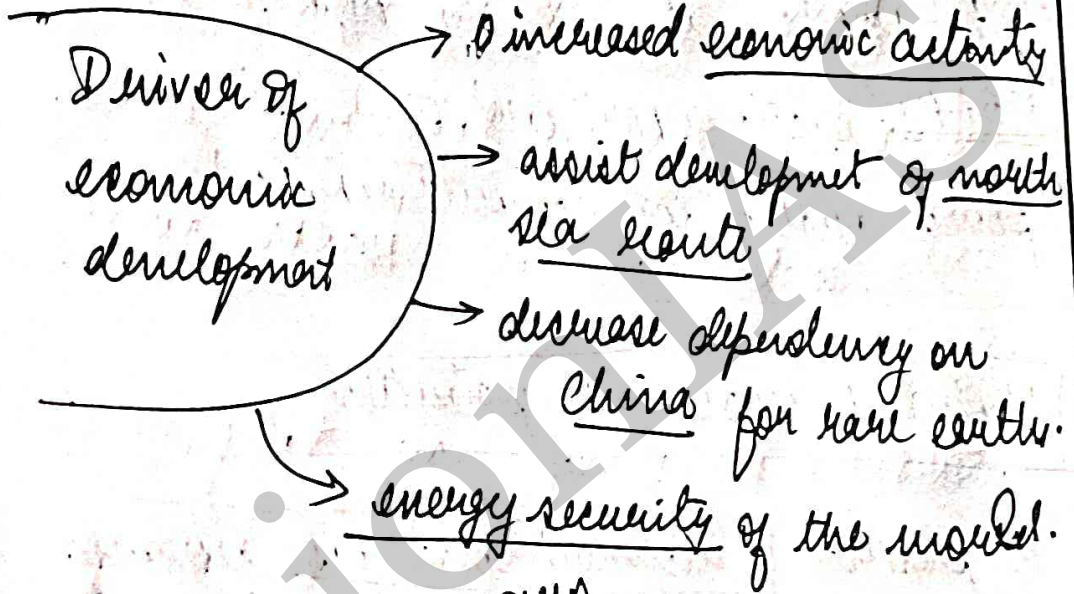 Driver of
economic
development
→ increased economic activity
→ assist developmet of north
sea route
→ decrease dependency on
China for rare earth.
→ energy security of the world.
ionIAS